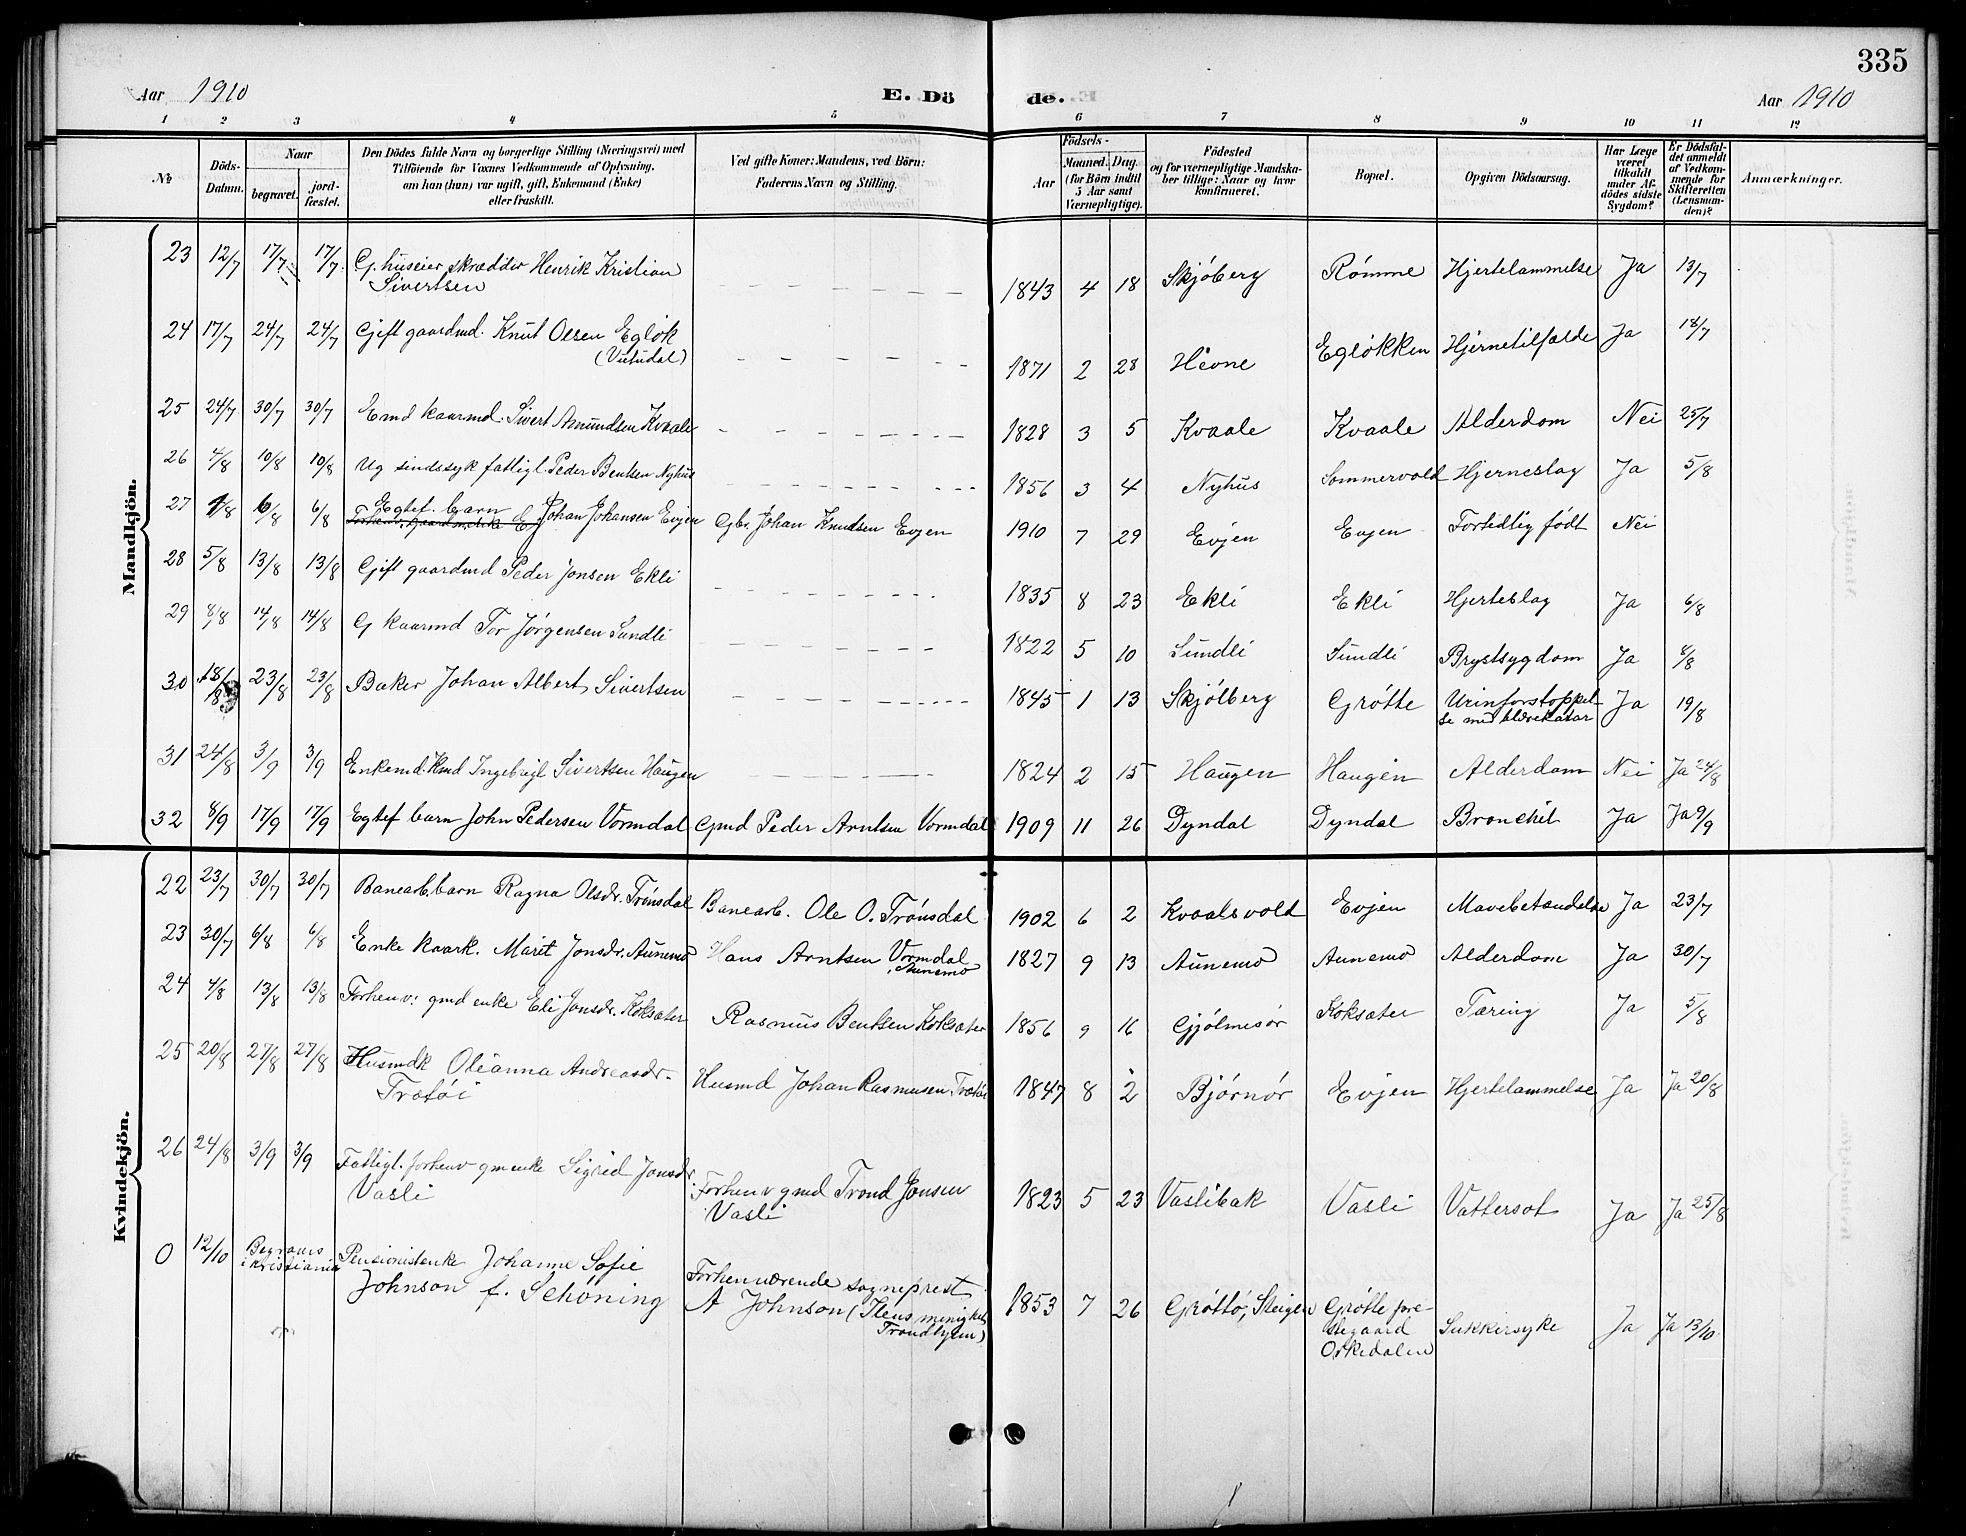 335
Aar 1910 E. Dö de. Aar 1910
1 2 3 4 5 6 7 8 9 10 11 12
No
Döds-Datum.
Naar
begravet.
jord-fæstet.
Den Dödes fulde Navn og borgerlige Stilling (Næringsvei) med
Tilföiende for Voxnes Vedkommende af Oplysning,
om han (hun) var ugift, gift, Enkemand (Enke)
eller fraskilt.
Ved gifte Koner: Mandens, ved Börn:
Faderens Navn og Stilling.
Födsels-
Aar
Maaned. Dag.
(for Börn indtil
5 Aar samt
Værnepligtige).
Födested
og for værnepligtige Mandska-
ber tillige: Naar og hvor
konfirmeret.
Bopæl.
Opgiven Dödsaarsag.
Har Læge
været
tilkaldt
under Af-
dödes sidste
Sygdom?
Er Dödsfal-
det anmeldt
af Vedkom-
mende for
Skifteretten
(Lensman-
den)?
Anmærkninger.
Mandkjön.
23 12/7 17/7 17/7 G. huseier skrædder Henrik Kristian
Sivertsen 1843 4 18 Skjöberg Römme Hjertelammelse Ja 13/7
24 17/7 24/7 24/7 Gift gaardmd. Knut Olsen Eglök
(Vutudal) 1871 2 28 Hevne Eglökken Hjernetilfælde Ja 18/7
25 24/7 30/7 30/7 Emd kaarmd. Sivert Amundsen Kvaale 1828 3 5 Kvaale Kvaale Alderdom Nei 25/7
26 4/8 10/8 10/8 Ug sindssyk fattigl. Peder Bentsen Nyhus 1856 3 4 Nyhus Sommervold Hjerneslag Ja 5/8
27 1/8 6/8 6/8 Egtef. barn Johan Johansen Evjen Gbr. Johan Knudsen Evjen 1910 7 29 Evjen Evjen Fortidlig födt Nei
28 5/8 13/8 13/8 Gift gaardmd Peder Jonsen Ekli 1835 8 23 Ekli Ekli Hjerteslag Ja 6/8
29 8/8 14/8 14/8 G kaarmd Tor Jörgensen Sundli 1822 5 10 Sundli Sundli Brystsygdom Ja 8/8
30 18/8 23/8 23/8 Baker Johan Albert Sivertsen 1845 1 13 Skjölberg Grötte Urinforstoppel-
se med blærekatar Ja 19/8
31 24/8 3/9 3/9 Enkemd. Kmd Ingebrigt Sivertsen Haugen 1824 2 15 Haugen Haugen Alderdom Nei Ja 24/8
32 8/9 17/9 17/9 Egtef barn John Pedersen Vormdal Gmd Peder Arntsen Vormdal 1909 11 26 Dyndal Dyndal Bronchit Ja Ja 9/9
Kvindekjön.
22 23/7 30/7 30/7 Banearb. barn Ragna Olsdr. Trönsdal Banearb. Ole O. Trönsdal 1902 6 2 Kvaalsvold Evjen Mavebetændelse Ja 23/7
23 30/7 6/8 6/8 Enke kaark. Marit Jonsdr. Aunemo Hans Arntsen Vormdal
Aunemo 1827 9 13 Aunemo Aunemo Alderdom Ja 30/7
24 4/8 13/8 13/8 Forhenv: gmd enke Eli Jonsdr. Koksæter Rasmus Bentsen Koksæter 1856 9 16 Gjölmesör Koksæter Tæring Ja 5/8
25 20/8 27/8 27/8 Husmdk Oleanna Andreasdr.
Trætöi Husmd Johan Rasmusen Trætöi 1847 8 2 Björnör Evjen Hjertelammelse Ja Ja 20/8
26 24/8 3/9 3/9 Fattigl. forhenv gm enke Sigrid Jonsdr.
Vasli Forhenv gmd Trond Jonsen
Vasli 1823 5 23 Vaslibak Vasli Vattersot Ja Ja 25/8
0 12/10 Begraves
i Kristiania Pensionistenke Johanne Sofie
Johnson f. Schöning Forhenværende sogneprest
A Johnson (Ilens menighet
Trondhjem) 1853 7 26 Gröttö, Steigen Grötte pre-
stegaard
Orkedalen Sukkersyke Ja Ja 13/10